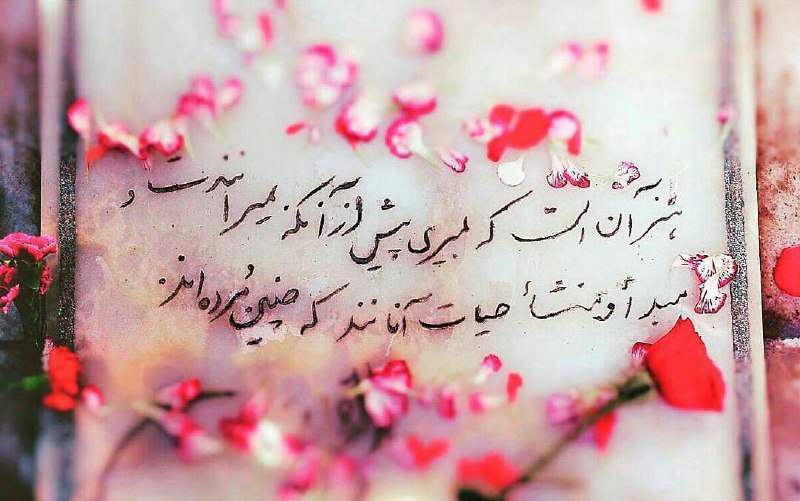 هنر آن است که بمیری پیش از آنکه بمیرانندت و
مبدأ و منشأ حیات آنانند که چنین مُرده اند.